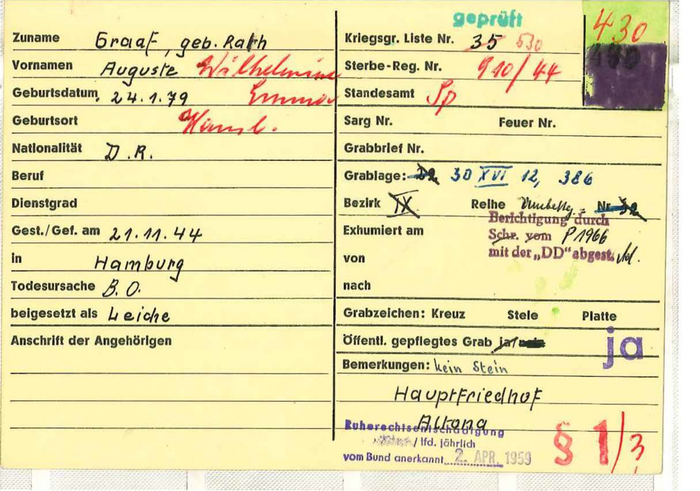 geprüft
430
Zuname Graaf, geb. Rath
Vornamen Auguste Wilhelmine
Emma
Geburtsdatum 24.1.79
Geburtsort Hambg.
Nationalität D.R.
Beruf
Dienstgrad
Gest./Gef. am 21.11.44
in Hamburg
Todesursache B.O.
beigesetzt als Leiche
Anschrift der Angehörigen
Kriegsgr. Liste Nr. 35 530
Sterbe-Reg. Nr. 910/44
Standesamt Sp
Sarg Nr. Feuer Nr.
Grabbrief Nr.
Grablage: 30 XVI 12, 386
Bezirk IX Reihe Nr. 32
Berichtigung durch
Exhumiert am Schr. vom P 1966
von mit der „DD" abgest.
nach
Grabzeichen: Kreuz Stele Platte
Öffentl. gepflegtes Grab ja/nein ja
Bemerkungen: kein Stein
Hauptfriedhof
Altona
Ruherechtsentschädigung
/ lfd. jährlich
vom Bund anerkannt 2. APR. 1959
§ 1/3